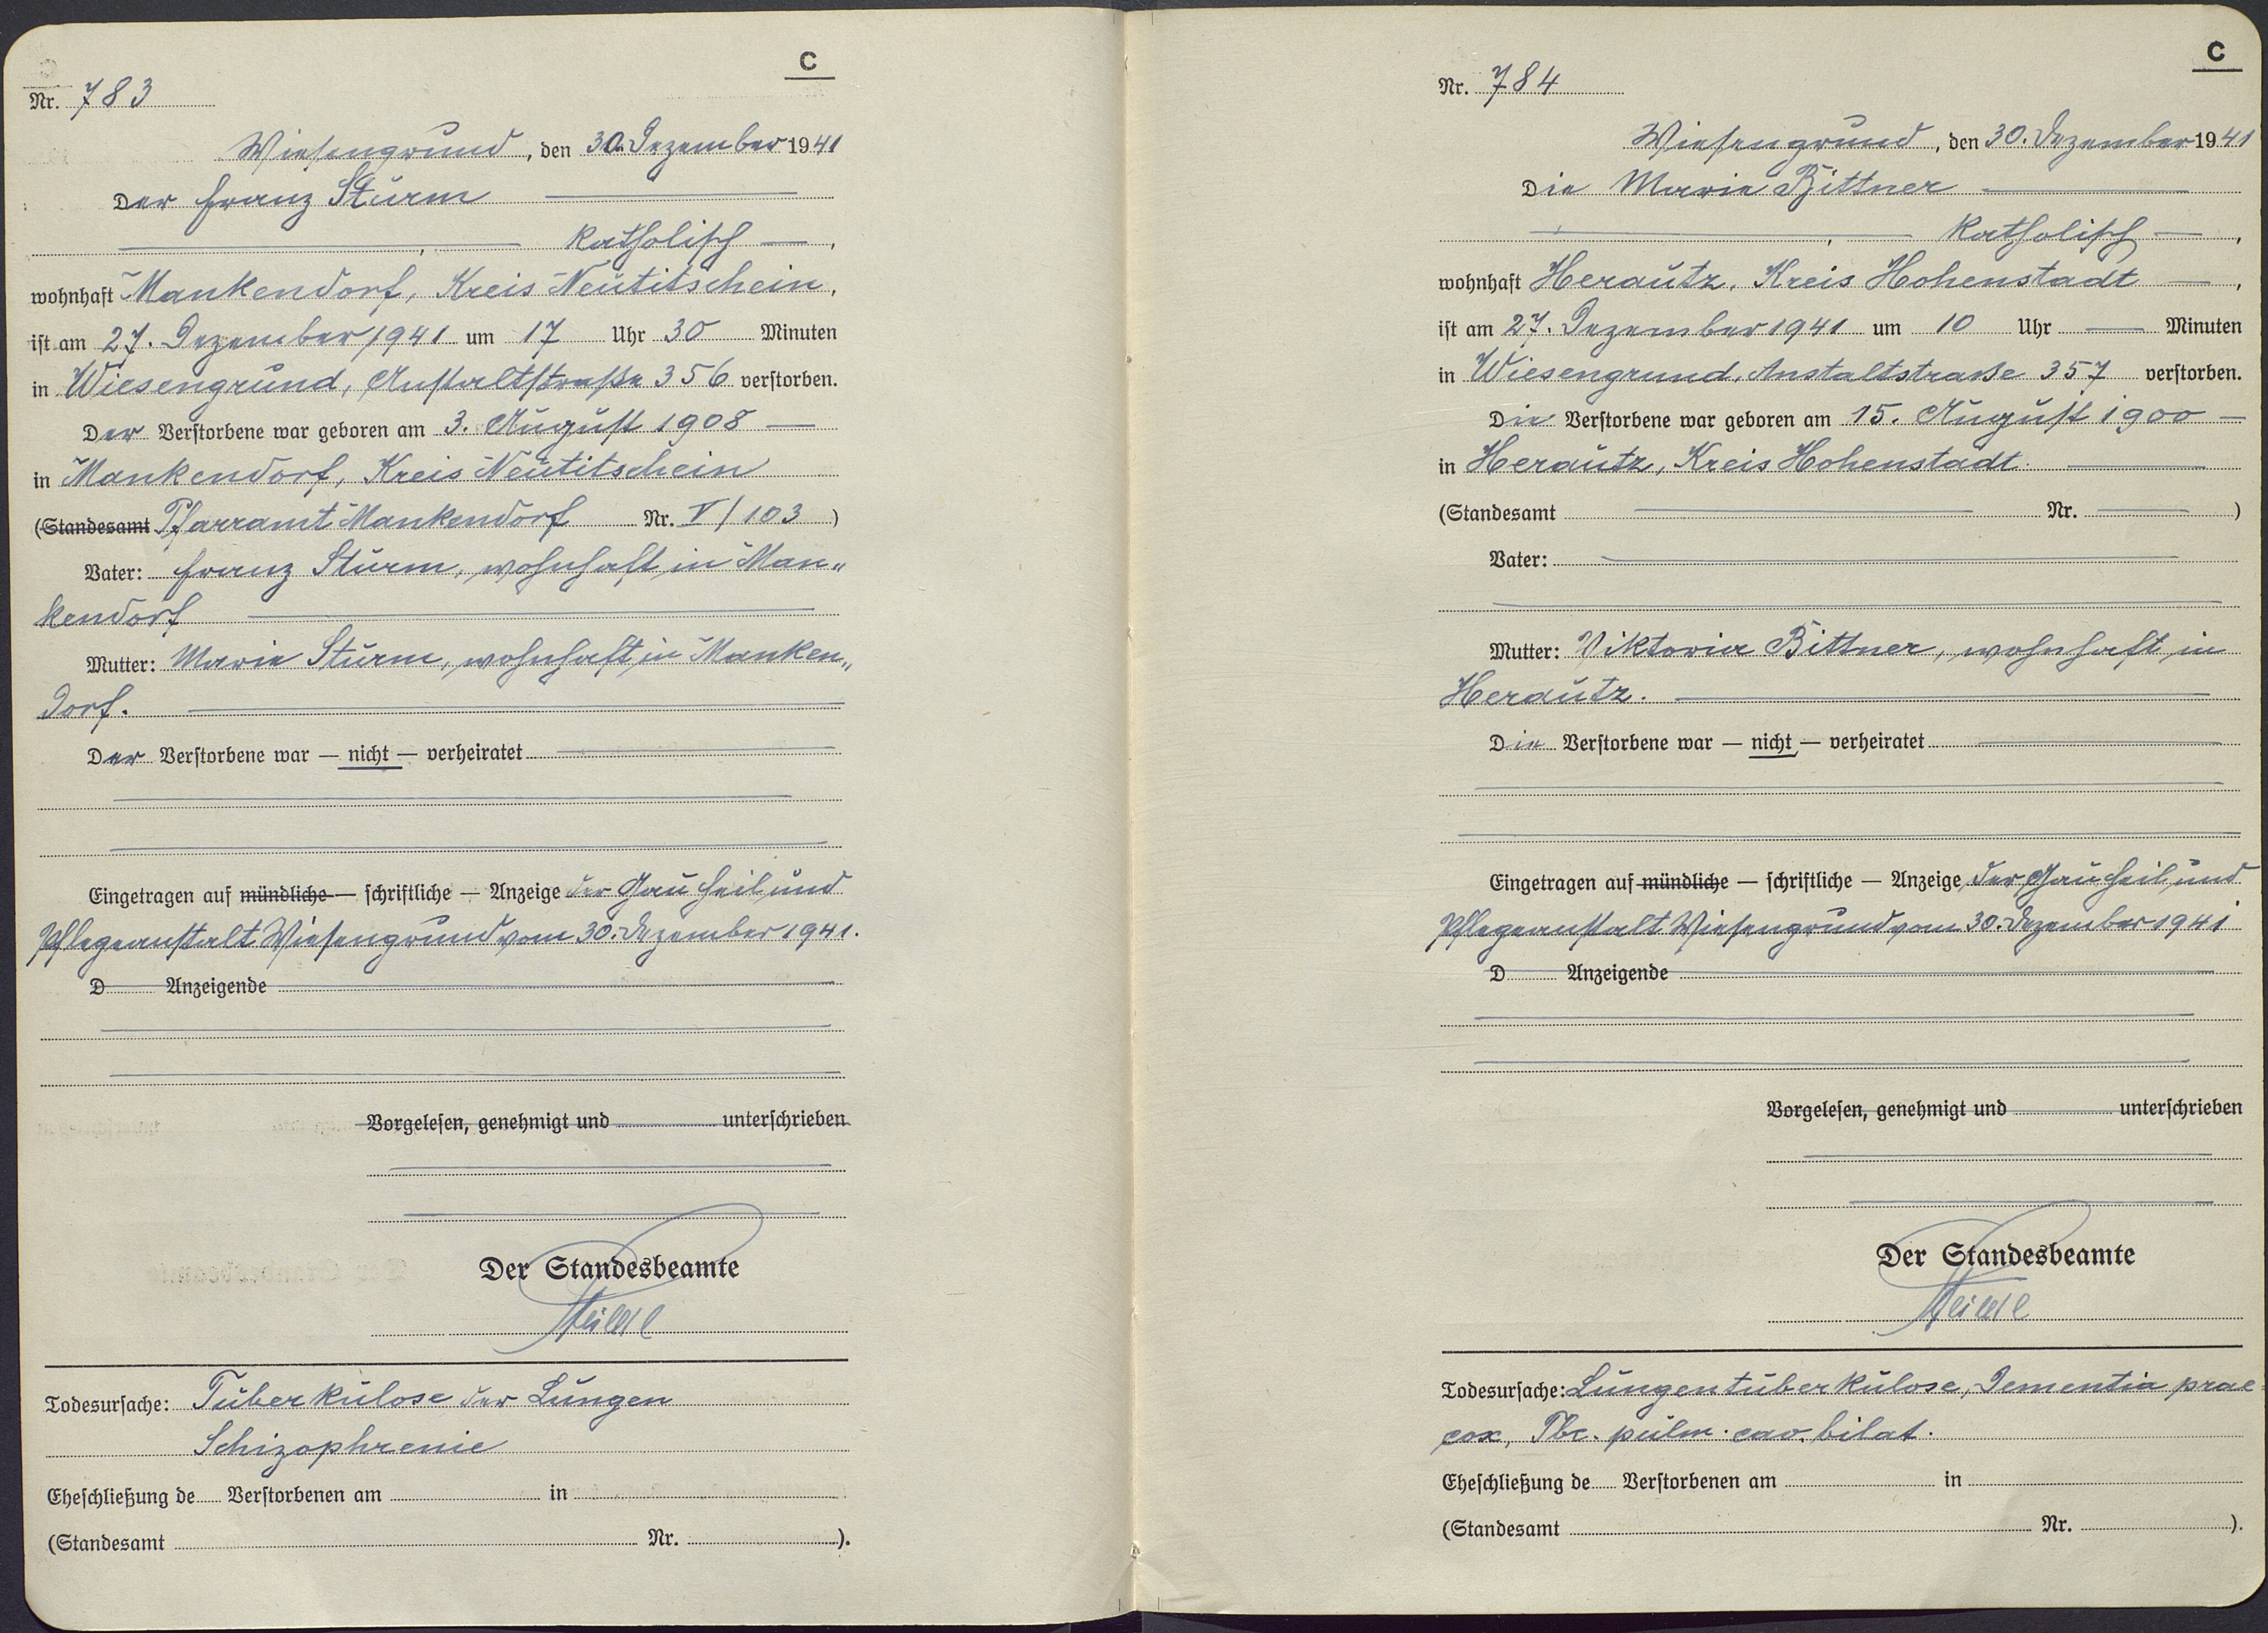 C
Nr. 783
Wiesengrund, den 30. Dezember 1941
Der Franz Sturm
katholisch,
wohnhaft Mankendorf, Kreis Neutitschein,
ist am 27. Dezember 1941 um 17 Uhr 30 Minuten
in Wiesengrund, Anstaltstraße 356 verstorben.
Der Verstorbene war geboren am 3. August 1908 —
in Mankendorf, Kreis Neutitschein
(Standesamt Pfarramt Mankendorf Nr. V/103)
Vater: Franz Sturm, wohnhaft in Man„
kendorf
Mutter: Marie Sturm, wohnhaft in Manken„
dorf.
Der Verstorbene war — nicht — verheiratet
Eingetragen auf mündliche — schriftliche — Anzeige der Gau Heil und
Pflegeanstalt Wiesengrund vom 30. Dezember 1941.
D Anzeigende
Vorgelesen, genehmigt und unterschrieben
Der Standesbeamte
Todesursache: Tuberkulose der Lungen
Schizophrenie
Eheschließung de Verstorbenen am in
(Standesamt Nr. ).
C
Nr. 784
Wiesengrund, den 30. Dezember 1941
Die Marie Bittner
katholisch —,
wohnhaft Herautz, Kreis Hohenstadt —,
ist am 27. Dezember 1941 um 10 Uhr — Minuten
in Wiesengrund, Anstaltstrasse 357 verstorben.
Die Verstorbene war geboren am 15. August 1900 —
in Herautz, Kreis Hohenstadt.
(Standesamt Nr. )
Vater:
Mutter: Viktoria Bittner, wohnhaft in
Herautz.
Die Verstorbene war — nicht — verheiratet
Eingetragen auf mündliche — schriftliche — Anzeige der Gau Heil und
Pflegeanstalt Wiesengrund vom 30. Dezember 1941
D Anzeigende
Vorgelesen, genehmigt und unterschrieben
Der Standesbeamte
Todesursache: Lungentuberkulose, Dementia prae-
cox, Tbc. pulm. cav. bilat.
Eheschließung de Verstorbenen am in
(Standesamt Nr. ).